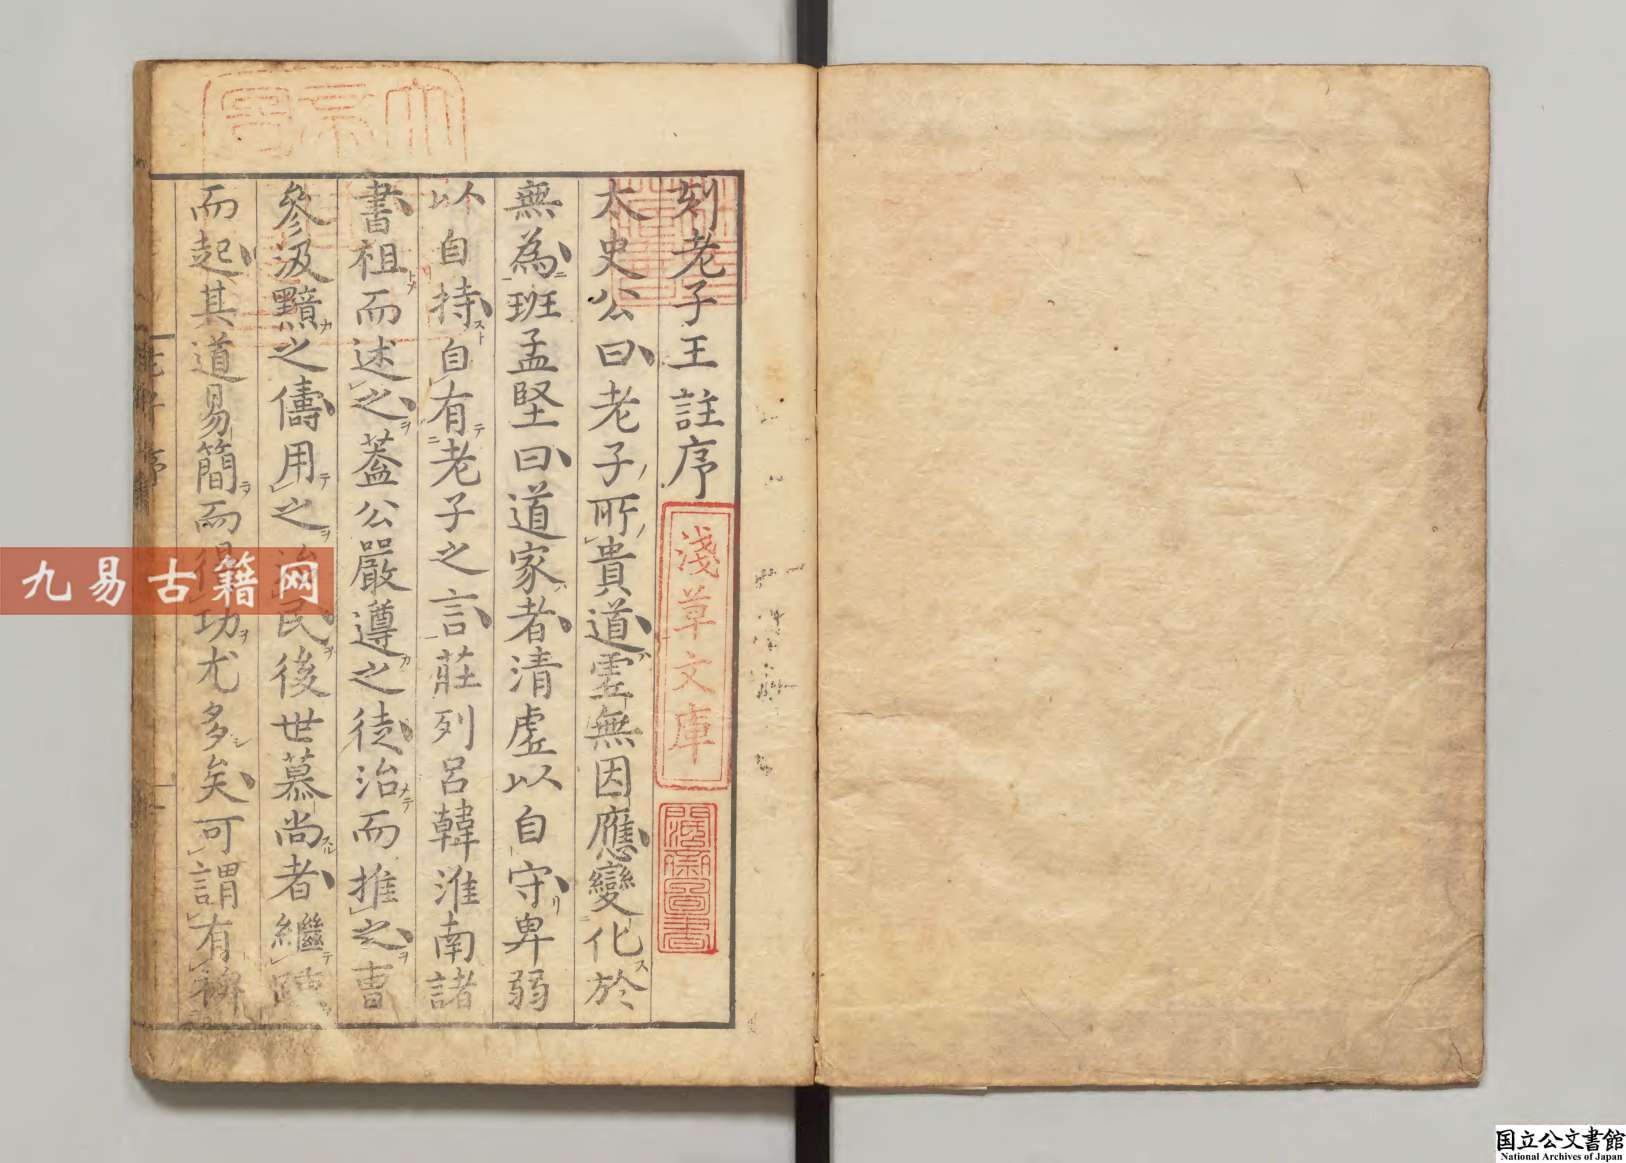 刻老子王註序
淺草文庫
太史公曰老子所貴道虛無因應變化於
無為班孟堅曰道家者清虛以自守卑弱
以自持自有老子之言莊列呂韓淮南諸
書祖而述之蓋公嚴遵之徒治而推之曹
參汲黯之儔用之治民後世慕尚者繼踵
而起其道易簡而得功尤多矣可謂有裨
九易古籍网
国立公文書館
National Archives of Japan